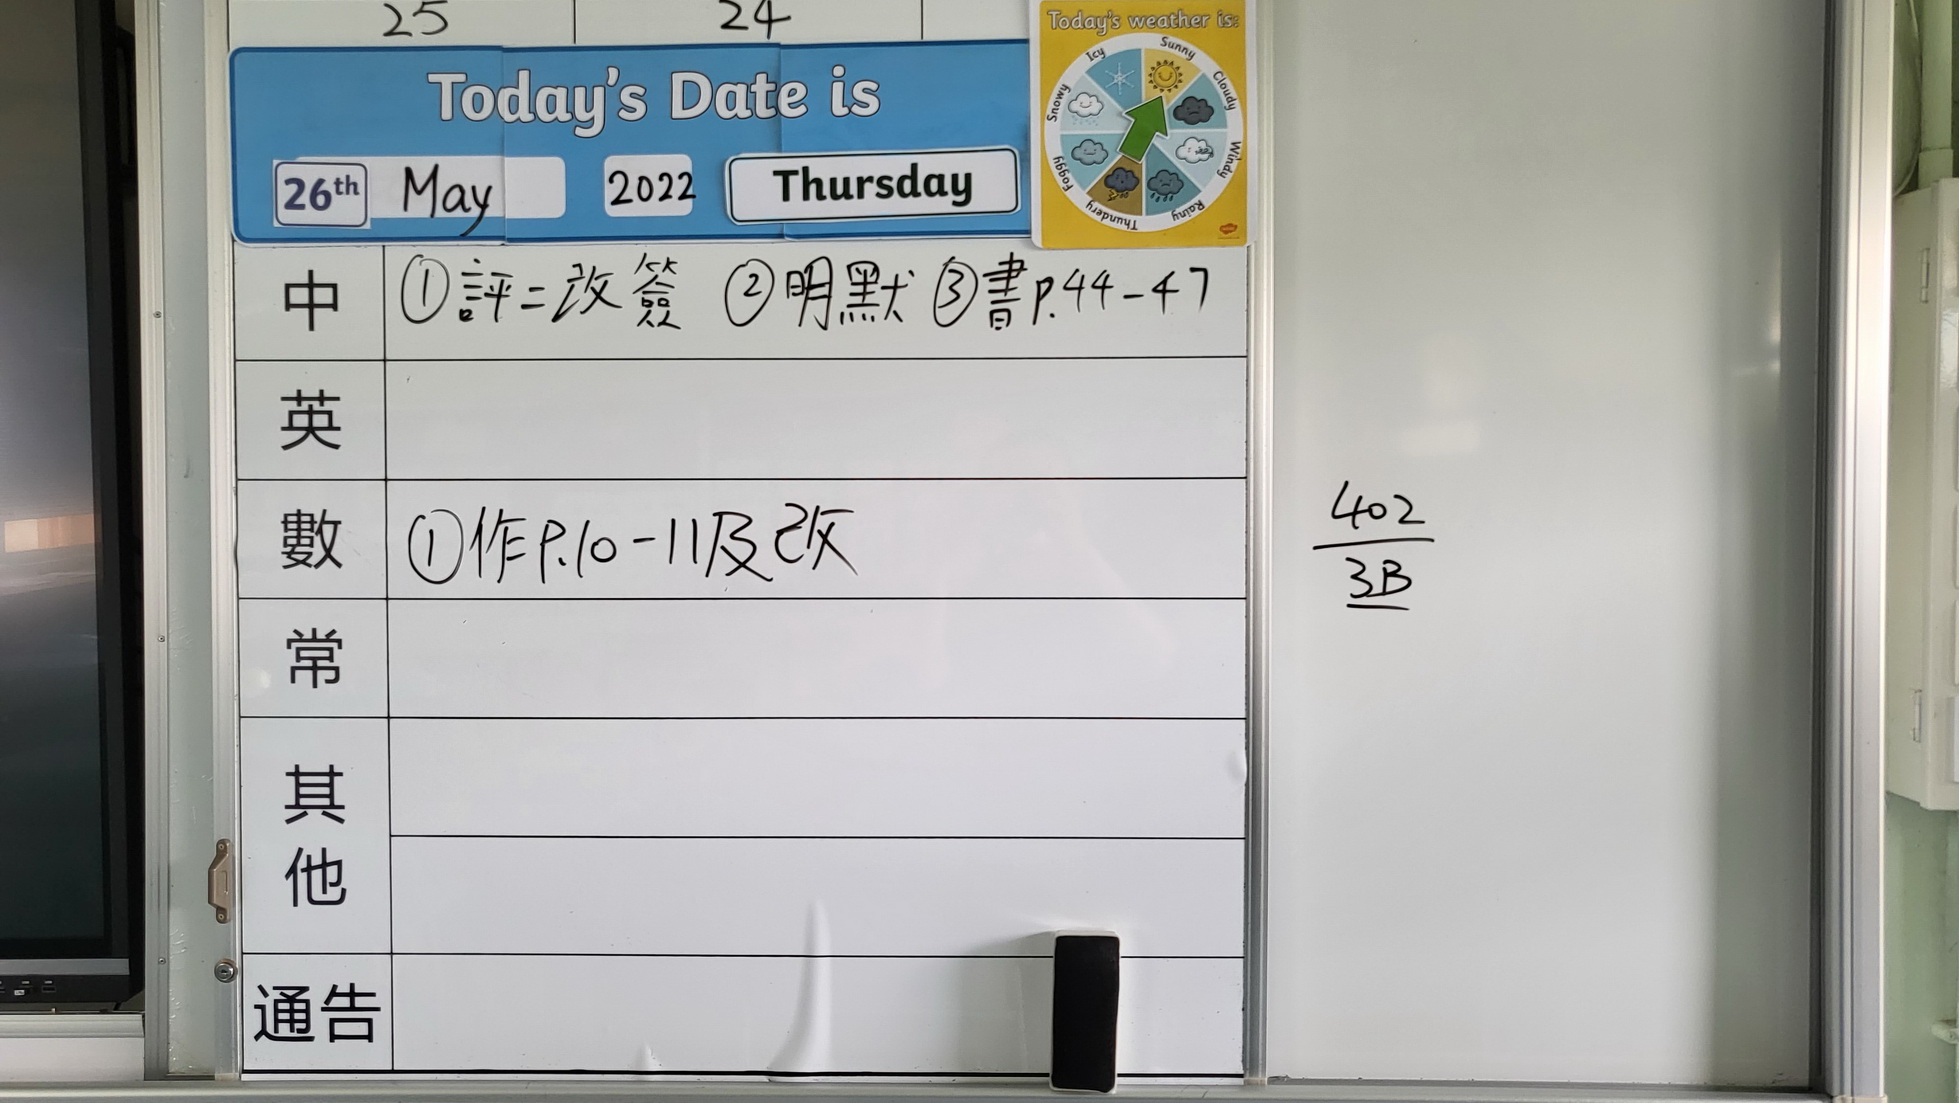 25 24
Today's Date is
26th May 2022 Thursday
Today's weather is:
Icy
Sunny
Cloudy
Windy
Rainy
Thundery
Foggy
Snowy
中 ①評二改簽 ②明默 ③書P.44-47
英
數 ①作P.10-11及改
常
其他
通告
402
3B